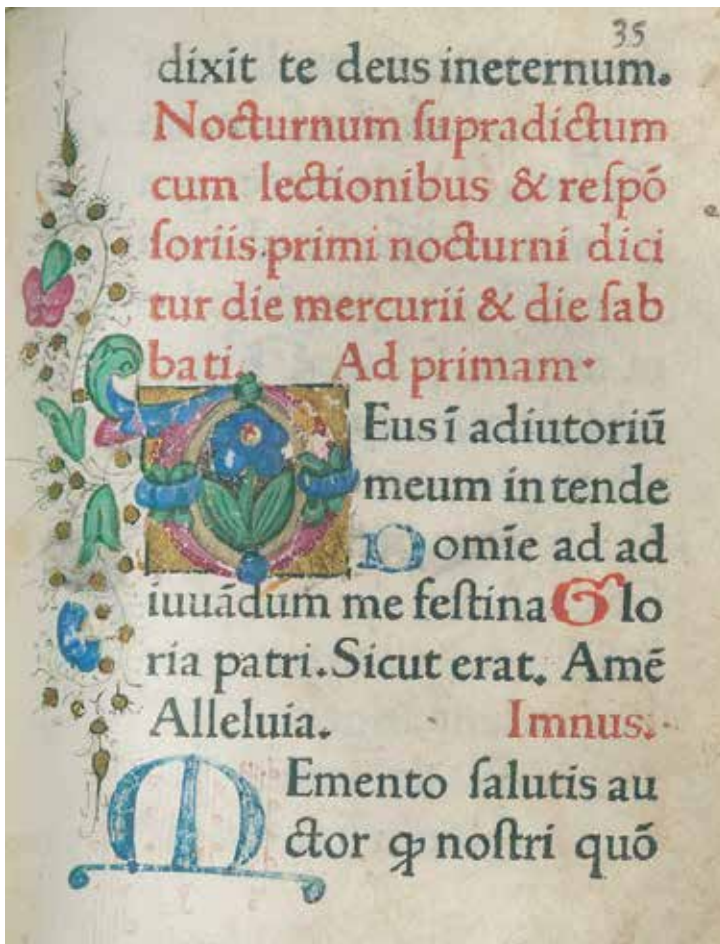 35
dixit te deus ineternum.
Nocturnum ſupradictum
cum lectionibus & reſpō
ſoriis primi nocturni dici
tur die mercurii & die ſab
bati. Ad primam·
DEus ī adiutoriū
meum in tende
Domīe ad ad
iuuādum me feſtina Glo
ria patri. Sicut erat. Amē
Alleluia. Imnus.
MEmento ſalutis au
ctor ꝙ noſtri quō